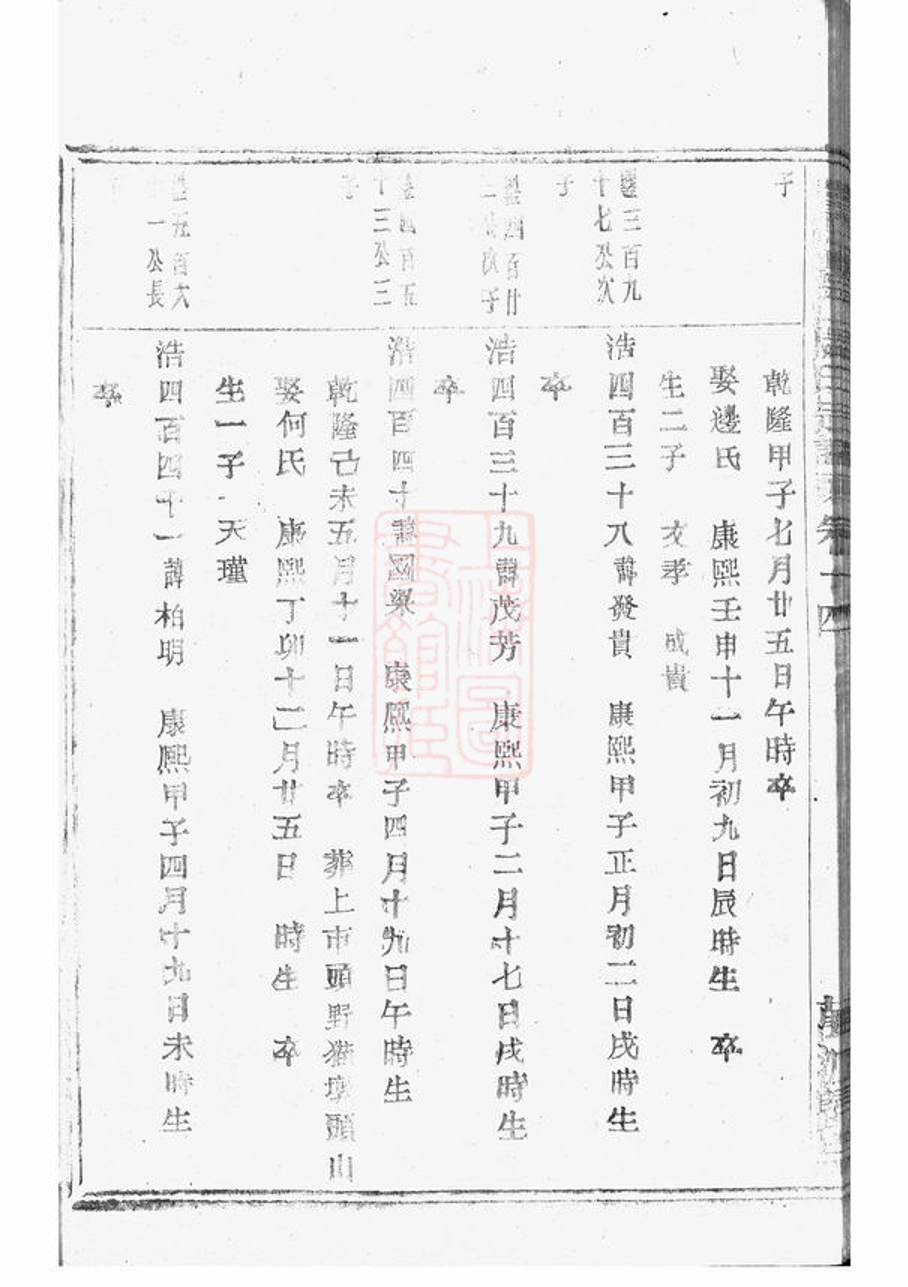 子
乾隆甲子七月廿五日午時卒
娶邊氏 康熙壬申十一月初九日辰時生 卒
生二子 文孝 成貴
三百九
十七公次
子
浩四百三十八諱發貴 康熙甲子正月初二日戌時生
卒
四百廿
次子
浩四百三十九諱茂芳 康熙甲子二月十七日戌時生
卒
四百五
十三公三
子
浩四百四十諱國梁 康熙甲子四月十九日午時生
乾隆己未五月十一日午時卒 葬上市頭野猫壞頭山
娶何氏 康熙丁卯十二月廿五日 時生 卒
生一子 天瑾
五百六
一公長
浩四百四十一諱柏明 康熙甲子四月十九日未時生
卒
卷十四
上海圖
書館藏